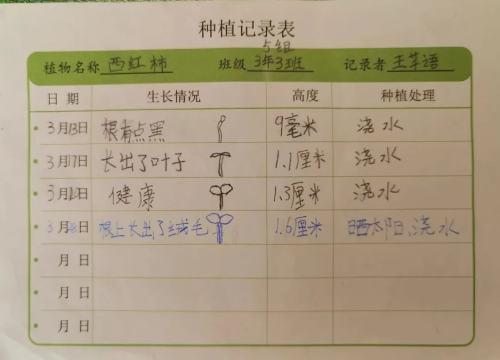 种植记录表
5组
植物名称 西红柿 班级 3年3班 记录者 王笨语
日期 生长情况 高度 种植处理
3月13日 根有点黑 9毫米 浇水
3月17日 长出了叶子 1.1厘米 浇水
3月 日 健康 1.3厘米 浇水
3月 日 根上长出了绒毛 1.6厘米 晒太阳、浇水
月 日
月 日
月 日